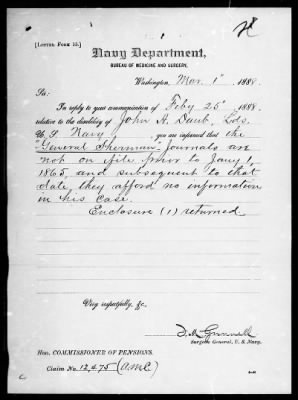 [Letter Form 13.]
Navy Department,
BUREAU OF MEDICINE AND SURGERY,
Washington, Mar. 1" 1888.
Sir:
In reply to your communication of Feby 25" 1888,
relative to the disability of John H. Daub, Lds.
U. S. Navy, you are informed that the
"General Sherman" Journals are
not on file prior to Jany 1,
1865, and subsequent to that
date they afford no information
in his case.
Enclosure (1) returned.
Very respectfully, &c.,
Surgeon General, U. S. Navy.
Hon. COMMISSIONER OF PENSIONS.
Claim No. 12,475 (A.M.C.)